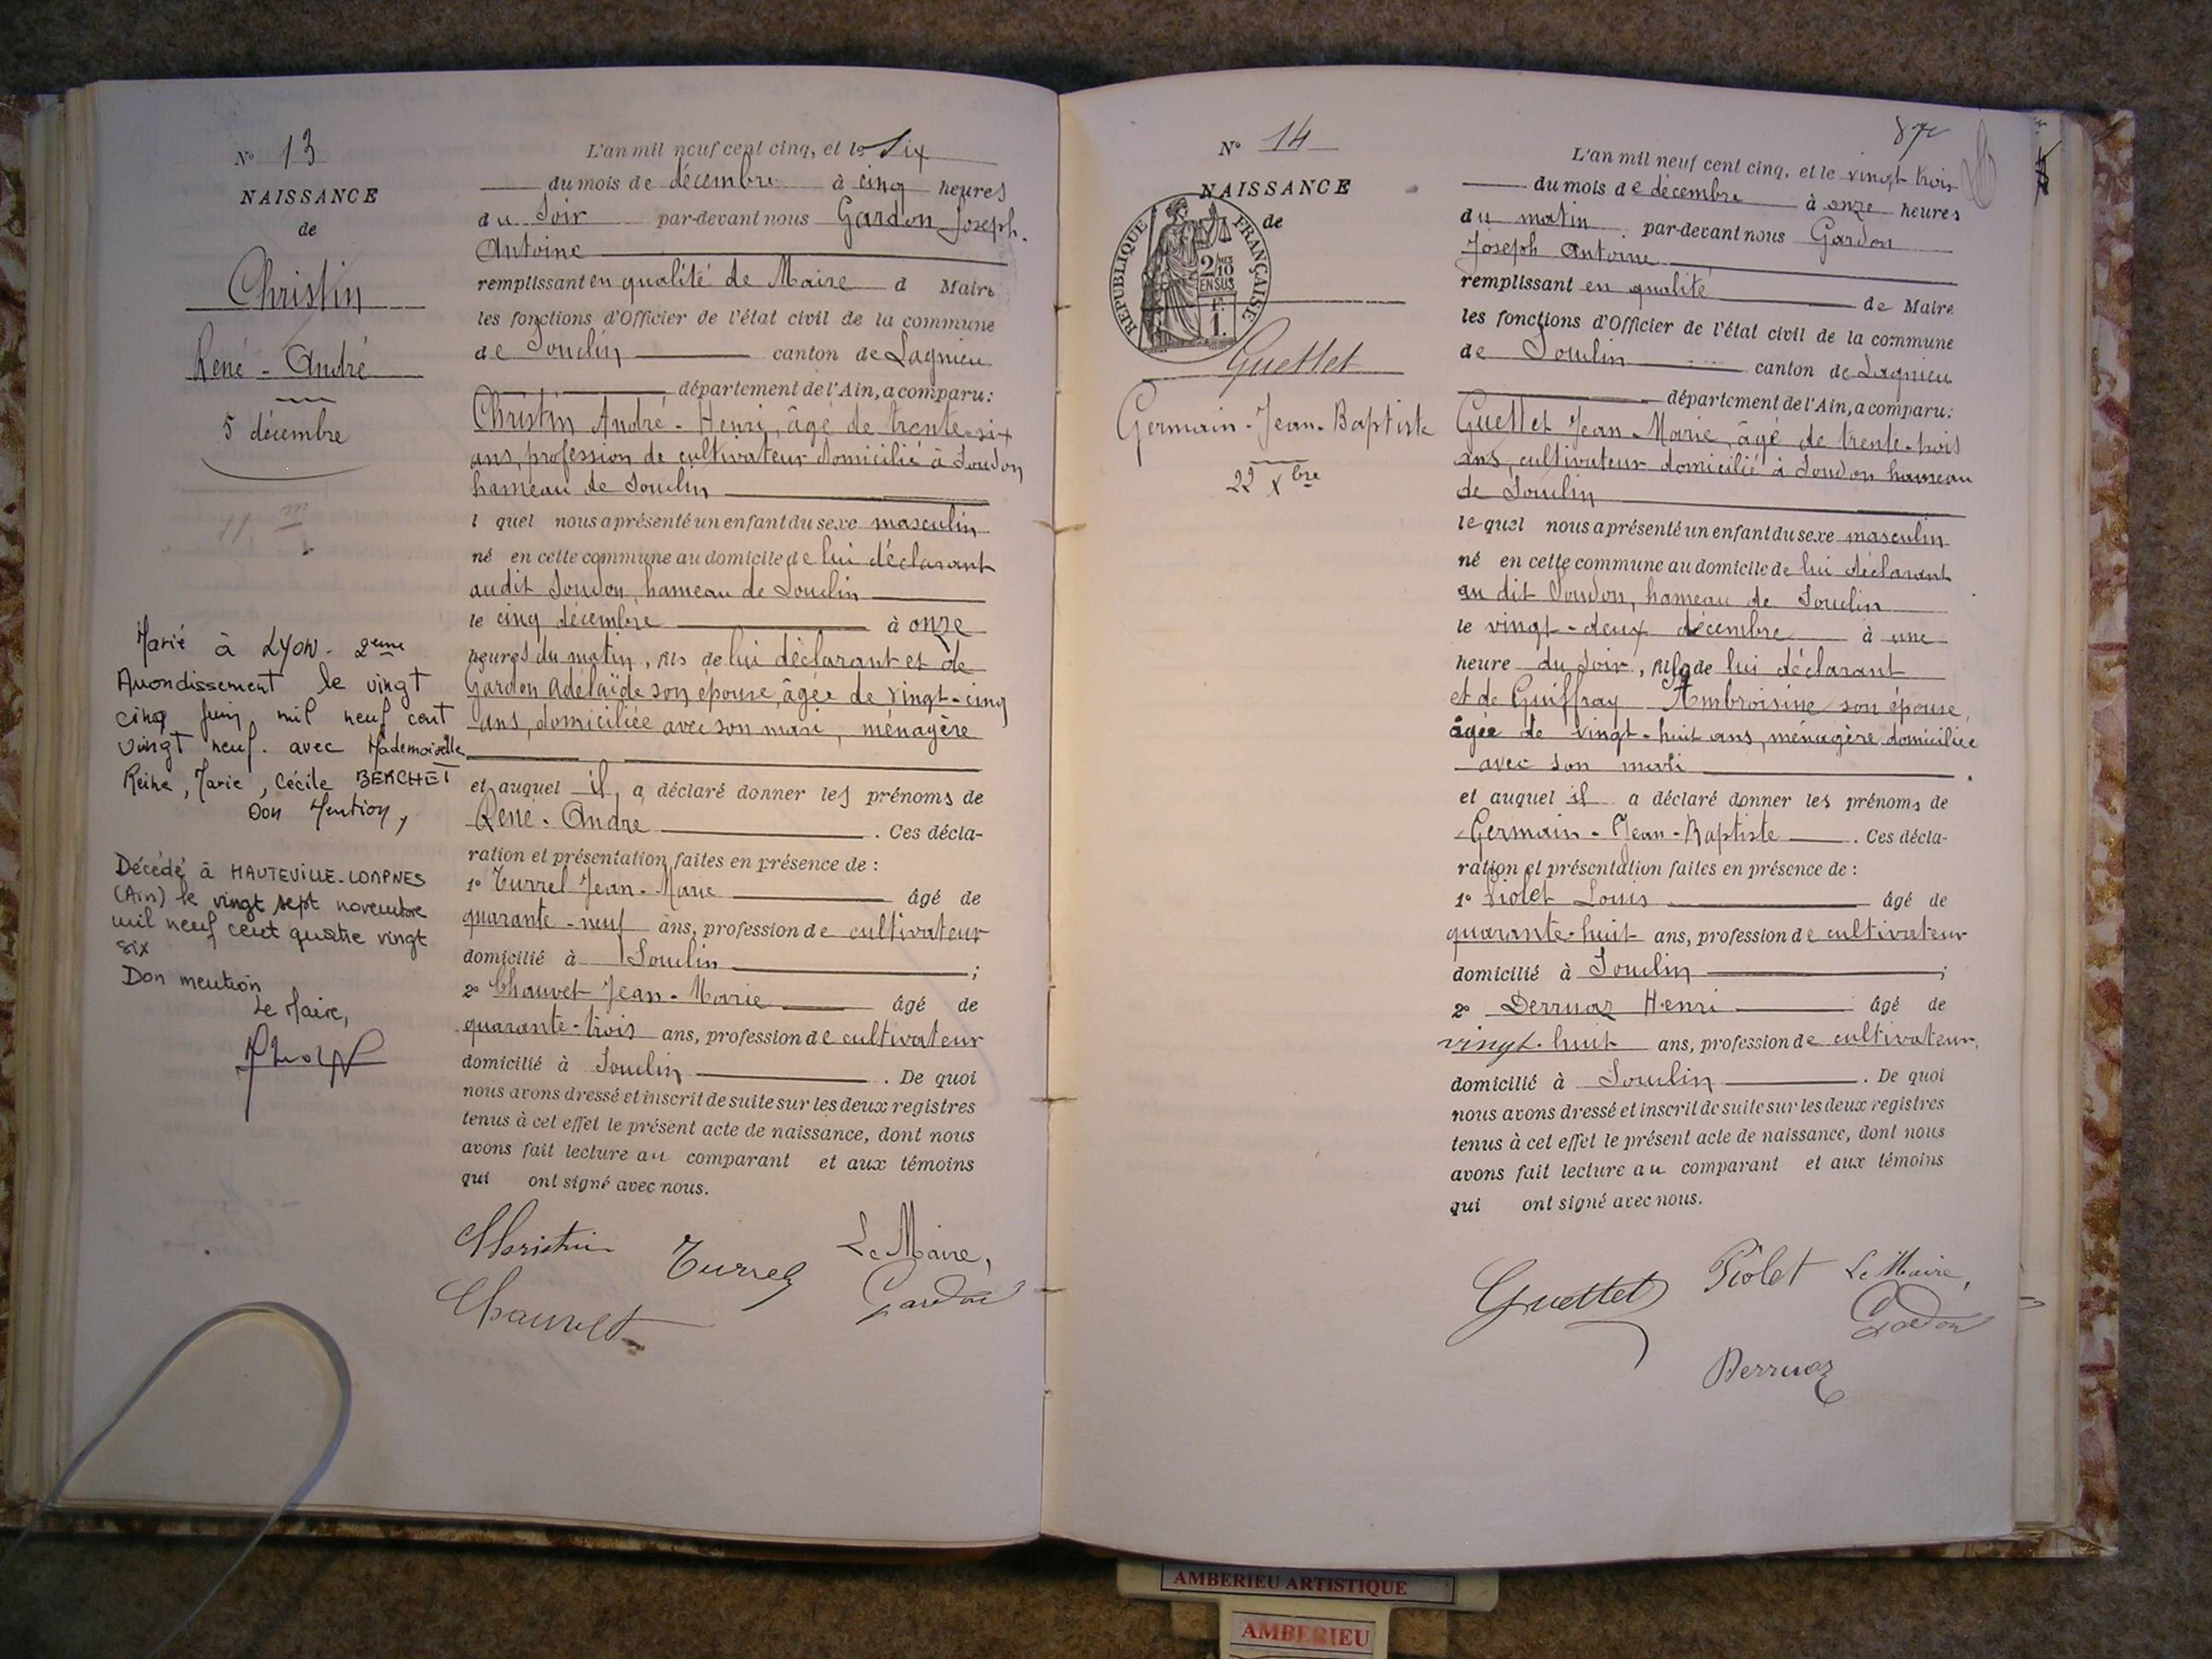 N° 13
NAISSANCE
de
Christin
René - André
5 décembre
Marié à LYON. 2ème
Arrondissement le vingt
cinq juin mil neuf cent
vingt neuf. avec Mademoiselle
Reine, Marie, Cécile BERCHET
Don Mention,
Décédé à HAUTEVILLE-LOMPNES
(Ain) le vingt sept novembre
mil neuf cent quatre vingt
six
Don mention
Le Maire,
L'an mil neuf cent cinq, et le Six
du mois de décembre à cinq heures
du Soir par-devant nous Gardon Joseph.
Antoine
remplissant en qualité de Maire d Maire
les fonctions d'Officier de l'état civil de la commune
de Souclin canton de Lagnieu
département de l'Ain, a comparu:
Christin André - Henri, âgé de trente-six
ans, profession de cultivateur domicilié à Soudon
hameau de Souclin
l quel nous a présenté un enfant du sexe masculin
né en cette commune au domicile de lui déclarant
audit Soudon, hameau de Souclin
le cinq décembre à onze
heures du matin, fils de lui déclarant et de
Gardon Adélaïde son épouse, âgée de vingt-cinq
ans, domiciliée avec son mari, ménagère
et auquel il a déclaré donner les prénoms de
René - André. Ces décla-
ration et présentation faites en présence de :
1° Turrel Jean - Marie âgé de
quarante - neuf ans, profession de cultivateur
domicilié à Souclin ;
2° Chauvet Jean - Marie âgé de
quarante-trois ans, profession de cultivateur
domicilié à Souclin. De quoi
nous avons dressé et inscrit de suite sur les deux registres
tenus à cet effet le présent acte de naissance, dont nous
avons fait lecture au comparant et aux témoins
qui ont signé avec nous.
Christin Turrel Le Maire,
Chauvet Gardon
N° 14
NAISSANCE
de
REPUBLIQUE FRANÇAISE
2/10
EN SUS
F.
1.
Guettet
Germain - Jean - Baptiste
22 Xbre
87
L'an mil neuf cent cinq, et le vingt trois
du mois de décembre à onze heures
du matin par-devant nous Gardon
Joseph Antoine
remplissant en qualité de Maire
les fonctions d'Officier de l'état civil de la commune
de Souclin canton de Lagnieu
département de l'Ain, a comparu:
Guettet Jean - Marie, âgé de trente-trois
ans, cultivateur domicilié à Soudon hameau
de Souclin
le quel nous a présenté un enfant du sexe masculin
né en cette commune au domicile de lui déclarant
au dit Soudon, hameau de Souclin
le vingt-deux décembre à une
heure du soir, fils de lui déclarant
et de Guiffray Ambroisine son épouse,
âgée de vingt-huit ans, ménagère domiciliée
avec son mari.
et auquel il a déclaré donner les prénoms de
Germain - Jean - Baptiste. Ces décla-
ration et présentation faites en présence de :
1° Piolet Louis âgé de
quarante-huit ans, profession de cultivateur
domicilié à Souclin ;
2° Derruaz Henri âgé de
vingt-huit ans, profession de cultivateur,
domicilié à Souclin. De quoi
nous avons dressé et inscrit de suite sur les deux registres
tenus à cet effet le présent acte de naissance, dont nous
avons fait lecture au comparant et aux témoins
qui ont signé avec nous.
Guettet Piolet Le Maire,
Gardon
Derruaz
AMBERIEU ARTISTIQUE
AMBERIEU